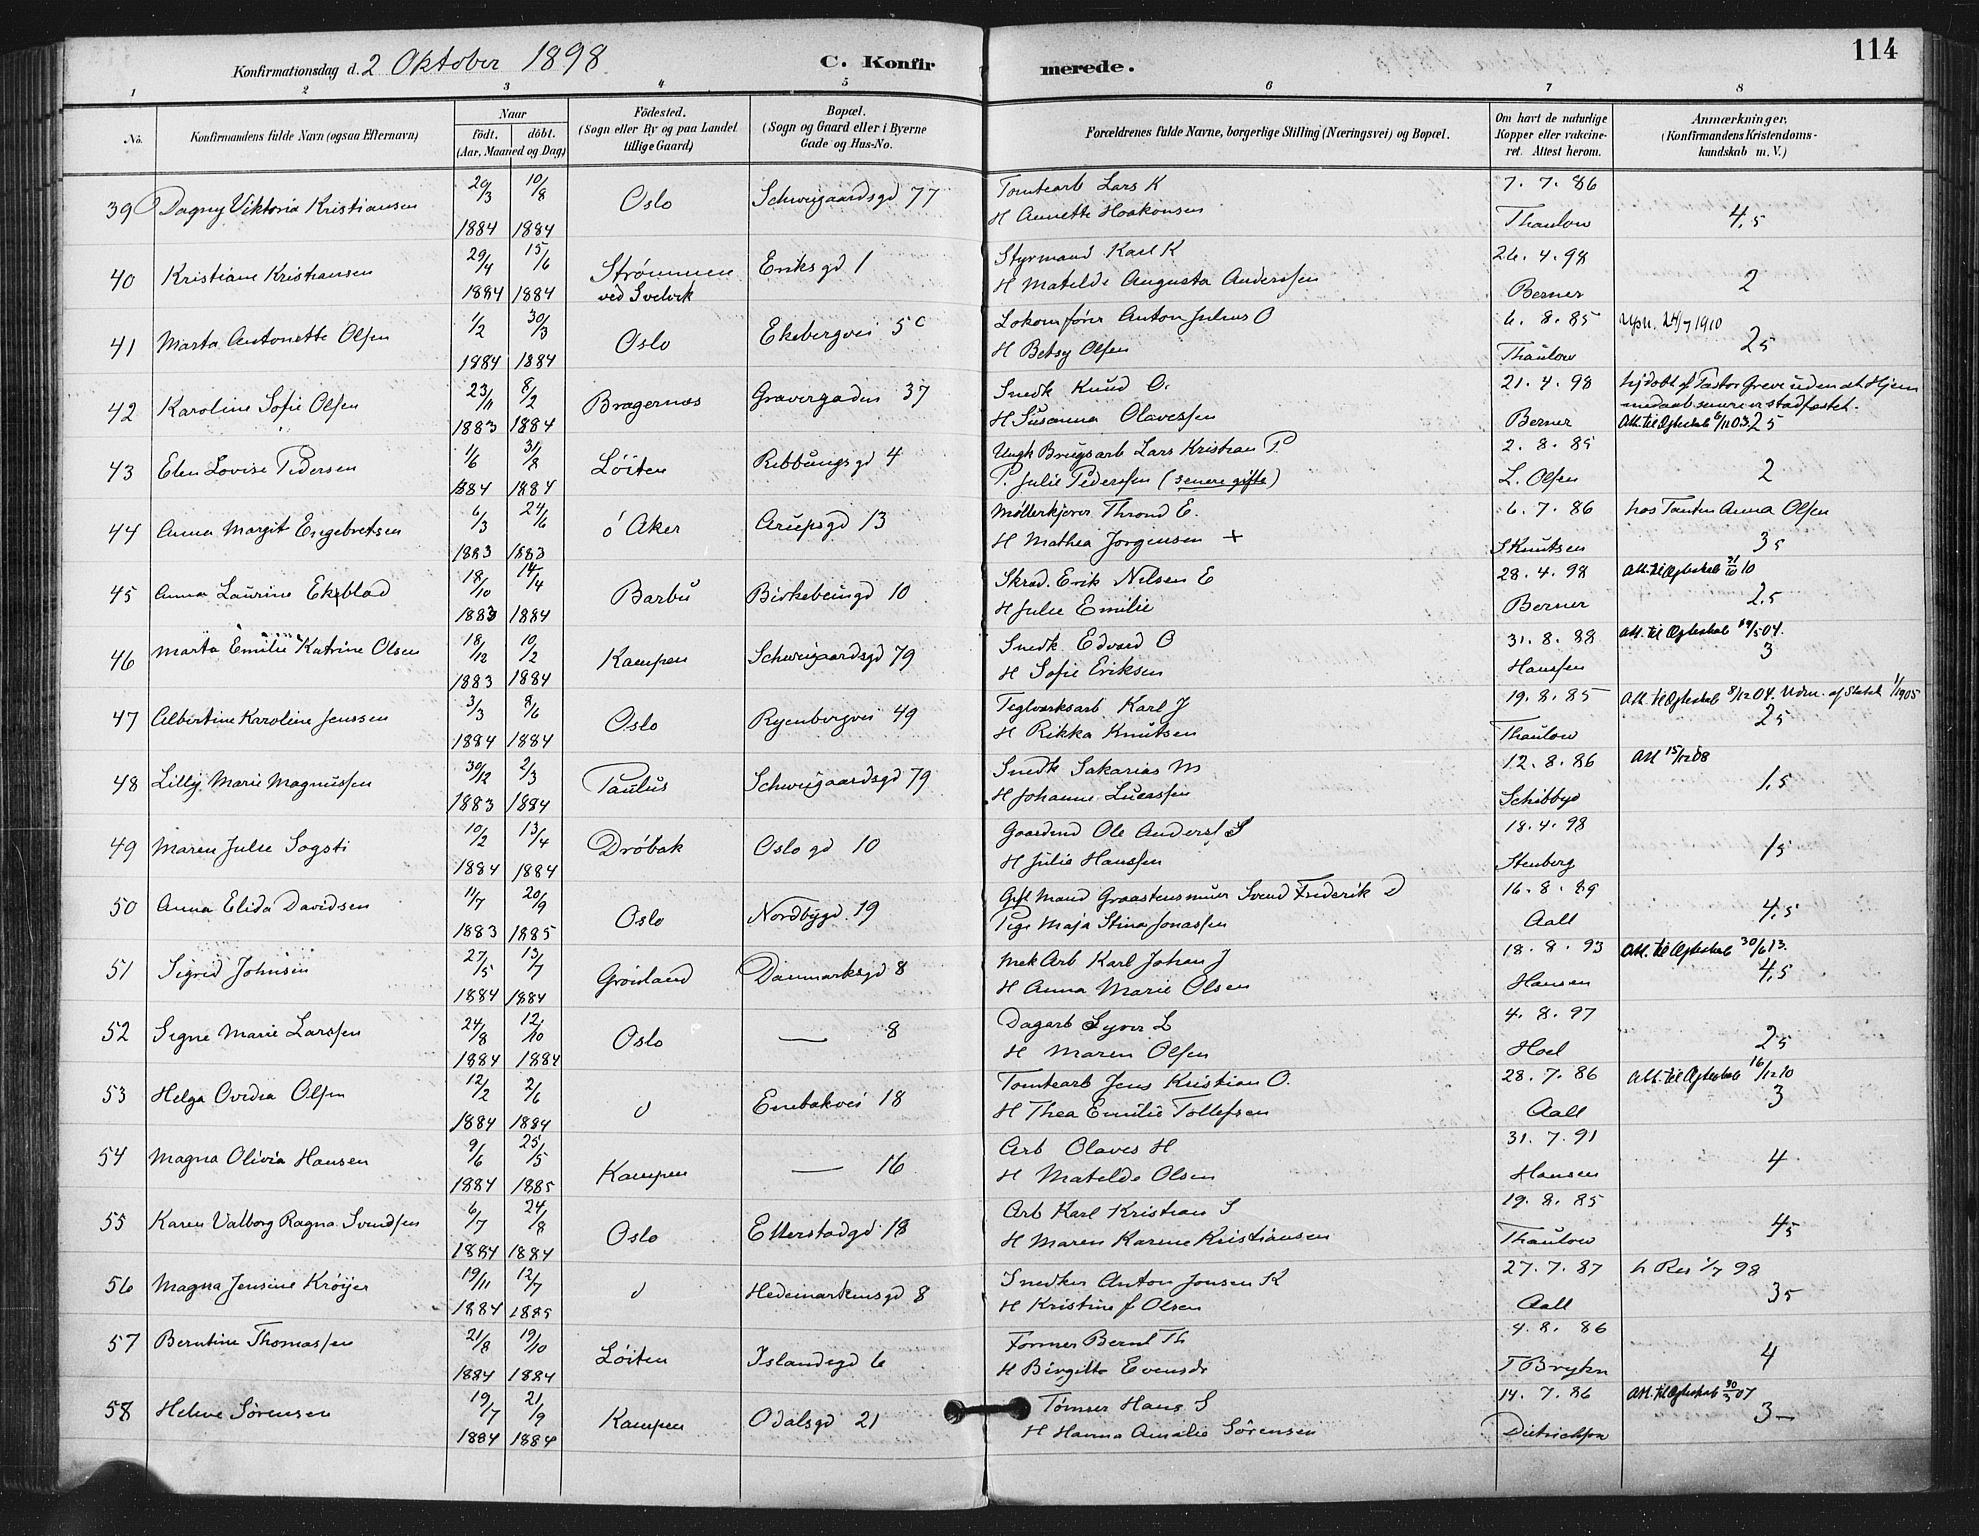 114
Konfirmationsdag d. 2 Oktober 1898
C. Konfir merede.
1 2 3 4 5 6 7 8
No.
Konfirmandens fulde Navn (ogsaa Efternavn)
Naar
födt. döbt.
(Aar, Maaned og Dag)
Födested.
(Sogn eller By og paa Landet
tillige Gaard)
Bopæl.
(Sogn og Gaard eller i Byerne
Gade og Hus-No.
Forældrenes fulde Navne, borgerlige Stilling (Næringsvei) og Bopæl.
Om havt de naturlige
Kopper eller vakcine-
ret. Attest herom.
Anmærkninger.
(Konfirmandens Kristendoms-
kundskab m. V.)
39 Dagny Viktoria Kristiansen 20/3 10/8 Oslo Schweigaardsgd 77 Tomtearb Lars K 7. 7. 86
1884 1884 H Annette Haakonsen Thaulow 4,5
40 Kristiane Kristiansen 29/4 15/6 Strömmen Eriksgd 1 Styrmand Karl K 26. 4. 98
1884 1884 ved Svelvik H Matilde Augusta Anderssen Berner 2
41 Marta Antonette Olsen 1/2 30/3 Oslo Ekebergvei 5c Lokomförer Anton Julius O 6. 8. 85 24/7 1910
1884 1884 H Betsy Olsen Thaulow 25
42 Karoline Sofie Olsen 23/11 8/2 Bragernæs Gravergaden 37 Snedk Knud O. 21. 4. 98 hjdöbt af Pastor Greve uden at Hjem
1883 1884 H Susanna Olavessen Berner medaab senere er stadfæstet.
Att. til Ægteskab 6/11 03. 25
43 Elen Lovise Pedersen 1/6 31/8 Löiten Ribbungsgd 4 Ungk Brugsarb Lars Kristian P. 2. 8. 85
1884 1884 P. Julie Pederssen (senere gifte) L. Olsen 2
44 Anna Margit Engebretsen 6/3 24/6 ö Aker Arupsgd 13 Möllerkjörer Thrond E. 6. 7. 86 hos Tanten Anna Olsen
1883 1883 H Mathea Jorgensen + S Knutsen 35
45 Anna Laurine Ekblad 18/10 14/4 Barbu Birkebeingd 10 Skræd. Erik Nilsen E 28. 4. 98 Att. til Ægteskab 21/10 10
1883 1884 H Julie Emilie Berner 2,5
46 Marta Emilie Katrine Olsen 18/12 10/2 Kampen Schweigaardsgd 79 Snedk Edvard O 31. 8. 88 Att. til Ægteskab 19/5 04.
1883 1884 H Sofie Eriksen Hanssen 3
47 Albertine Karoline Jenssen 3/3 8/6 Oslo Ryenbergvei 49 Teglværksarb. Karl J 19. 8. 85 Att. til Ægteskab 8/12 04. Udm. af Statsk 1/1 1905
1884 1884 H Rikka Knutsen Thaulow 25
48 Lilly Marie Magnussen 30/12 2/3 Paulus Schweigaardsgd 79 Snedk Sakarias M 12. 8. 86 Att 15/12 08
1883 1884 H Johanne Lucassen Schibbye 1,5
49 Maren Julie Sogsti 10/2 13/4 Dröbak Oslogd 10 Gaardmd Ole Anderss S 18. 4. 98
1884 1884 H Julie Hanssen Stenberg 15
50 Anna Elida Davidsen 11/7 20/9 Oslo Nordbygd. 19 Gift Mand Graastensmurer Svend Frederik D 16. 8. 89
1883 1885 Pige Maja Stina Jonassen Aall 4,5
51 Sigrid Johnsen 27/5 13/7 Grönland Danmarksgd 8 Mek Arb Karl Johan J 18. 8. 93 Att. til Ægteskab 30/6 13.
1884 1884 H Anna Marie Olsen Hansen 4,5
52 Signe Marie Larssen 24/8 12/10 Oslo — 8 Dagarb Syver L 4. 8. 97
1884 1884 H Maren Olsen Hoel 25
53 Helga Ovedia Olsen 12/2 2/6 d Enebakvei 18 Tomtearb Jens Kristian O. 28. 7. 86 Att. til Ægteskab 16/12 10
1884 1884 H Thea Emilie Tollefsen Aall 3
54 Magna Olivia Hansen 9/6 25/5 Kampen — 16 Arb Olaves H 31. 7. 91
1884 1885 H Matelde Olsen Hansen 4
55 Karen Valborg Ragna Svendsen 6/7 24/8 Oslo Etterstadgd 18 Arb Karl Kristian S 19. 8. 85
1884 1884 H Maren Karine Kristiansen Thaulow 45
56 Magna Jensine Kröijer 19/11 12/7 d Hedemarkensgd 8 Snedker Anton Jensen K 27. 7. 87 h Res 1/7 98
1884 1885 H Kristine f Olsen Aall 35
57 Berntine Thomassen 21/8 19/10 Löiten Islandsgd 6 Former Bernt Th 4. 8. 86
1884 1884 H Birgitta Evensdr T Bryhn 4
58 Helene Sörensen 19/7 21/9 Kampen Odalsgd 21 Tömmer Hans S 14. 7. 86 Att. til Ægteskab 30/3 07
1884 1884 H Hanna Amalie Sörensen Dietrichson 3—